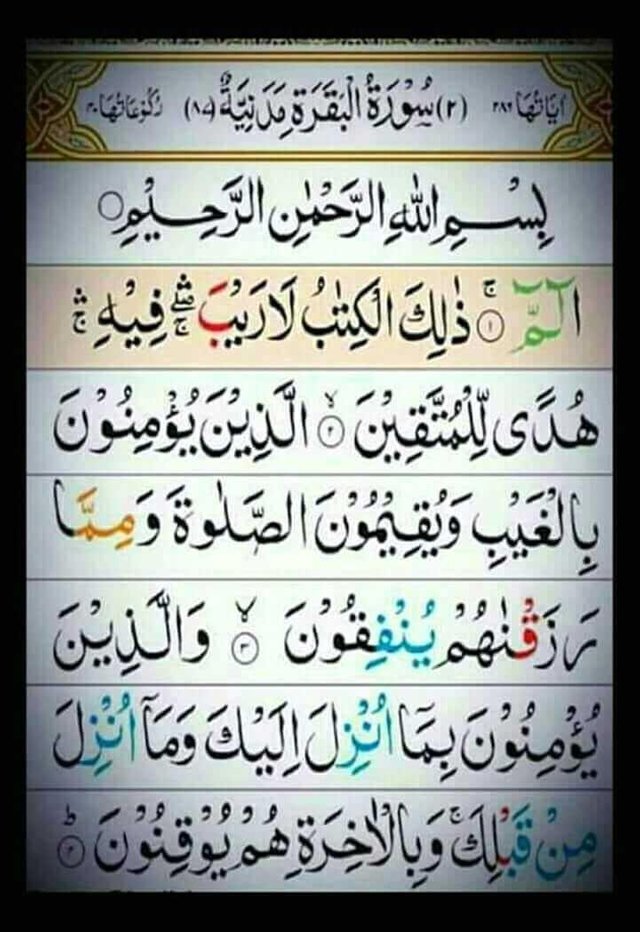 اٰيَاتُهَا ٢٨٦ (٢) سُوْرَةُ الْبَقَرَةِ مَدَنِيَّةٌ (٨٧) رُكُوْعَاتُهَا ٤٠
بِسْمِ اللّٰهِ الرَّحْمٰنِ الرَّحِيْمِ
الٓمّٓ ۚ ١ ذٰلِكَ الْكِتٰبُ لَا رَيْبَ ۛۖۚ فِيْهِ ۛۚ
هُدًى لِّلْمُتَّقِيْنَ ۙ ٢ الَّذِيْنَ يُؤْمِنُوْنَ
بِالْغَيْبِ وَيُقِيْمُوْنَ الصَّلٰوةَ وَمِمَّا
رَزَقْنٰهُمْ يُنْفِقُوْنَ ۙ ٣ وَالَّذِيْنَ
يُؤْمِنُوْنَ بِمَآ اُنْزِلَ اِلَيْكَ وَمَآ اُنْزِلَ
مِنْ قَبْلِكَ ۚ وَبِالْاٰخِرَةِ هُمْ يُوْقِنُوْنَ ؕ ٤